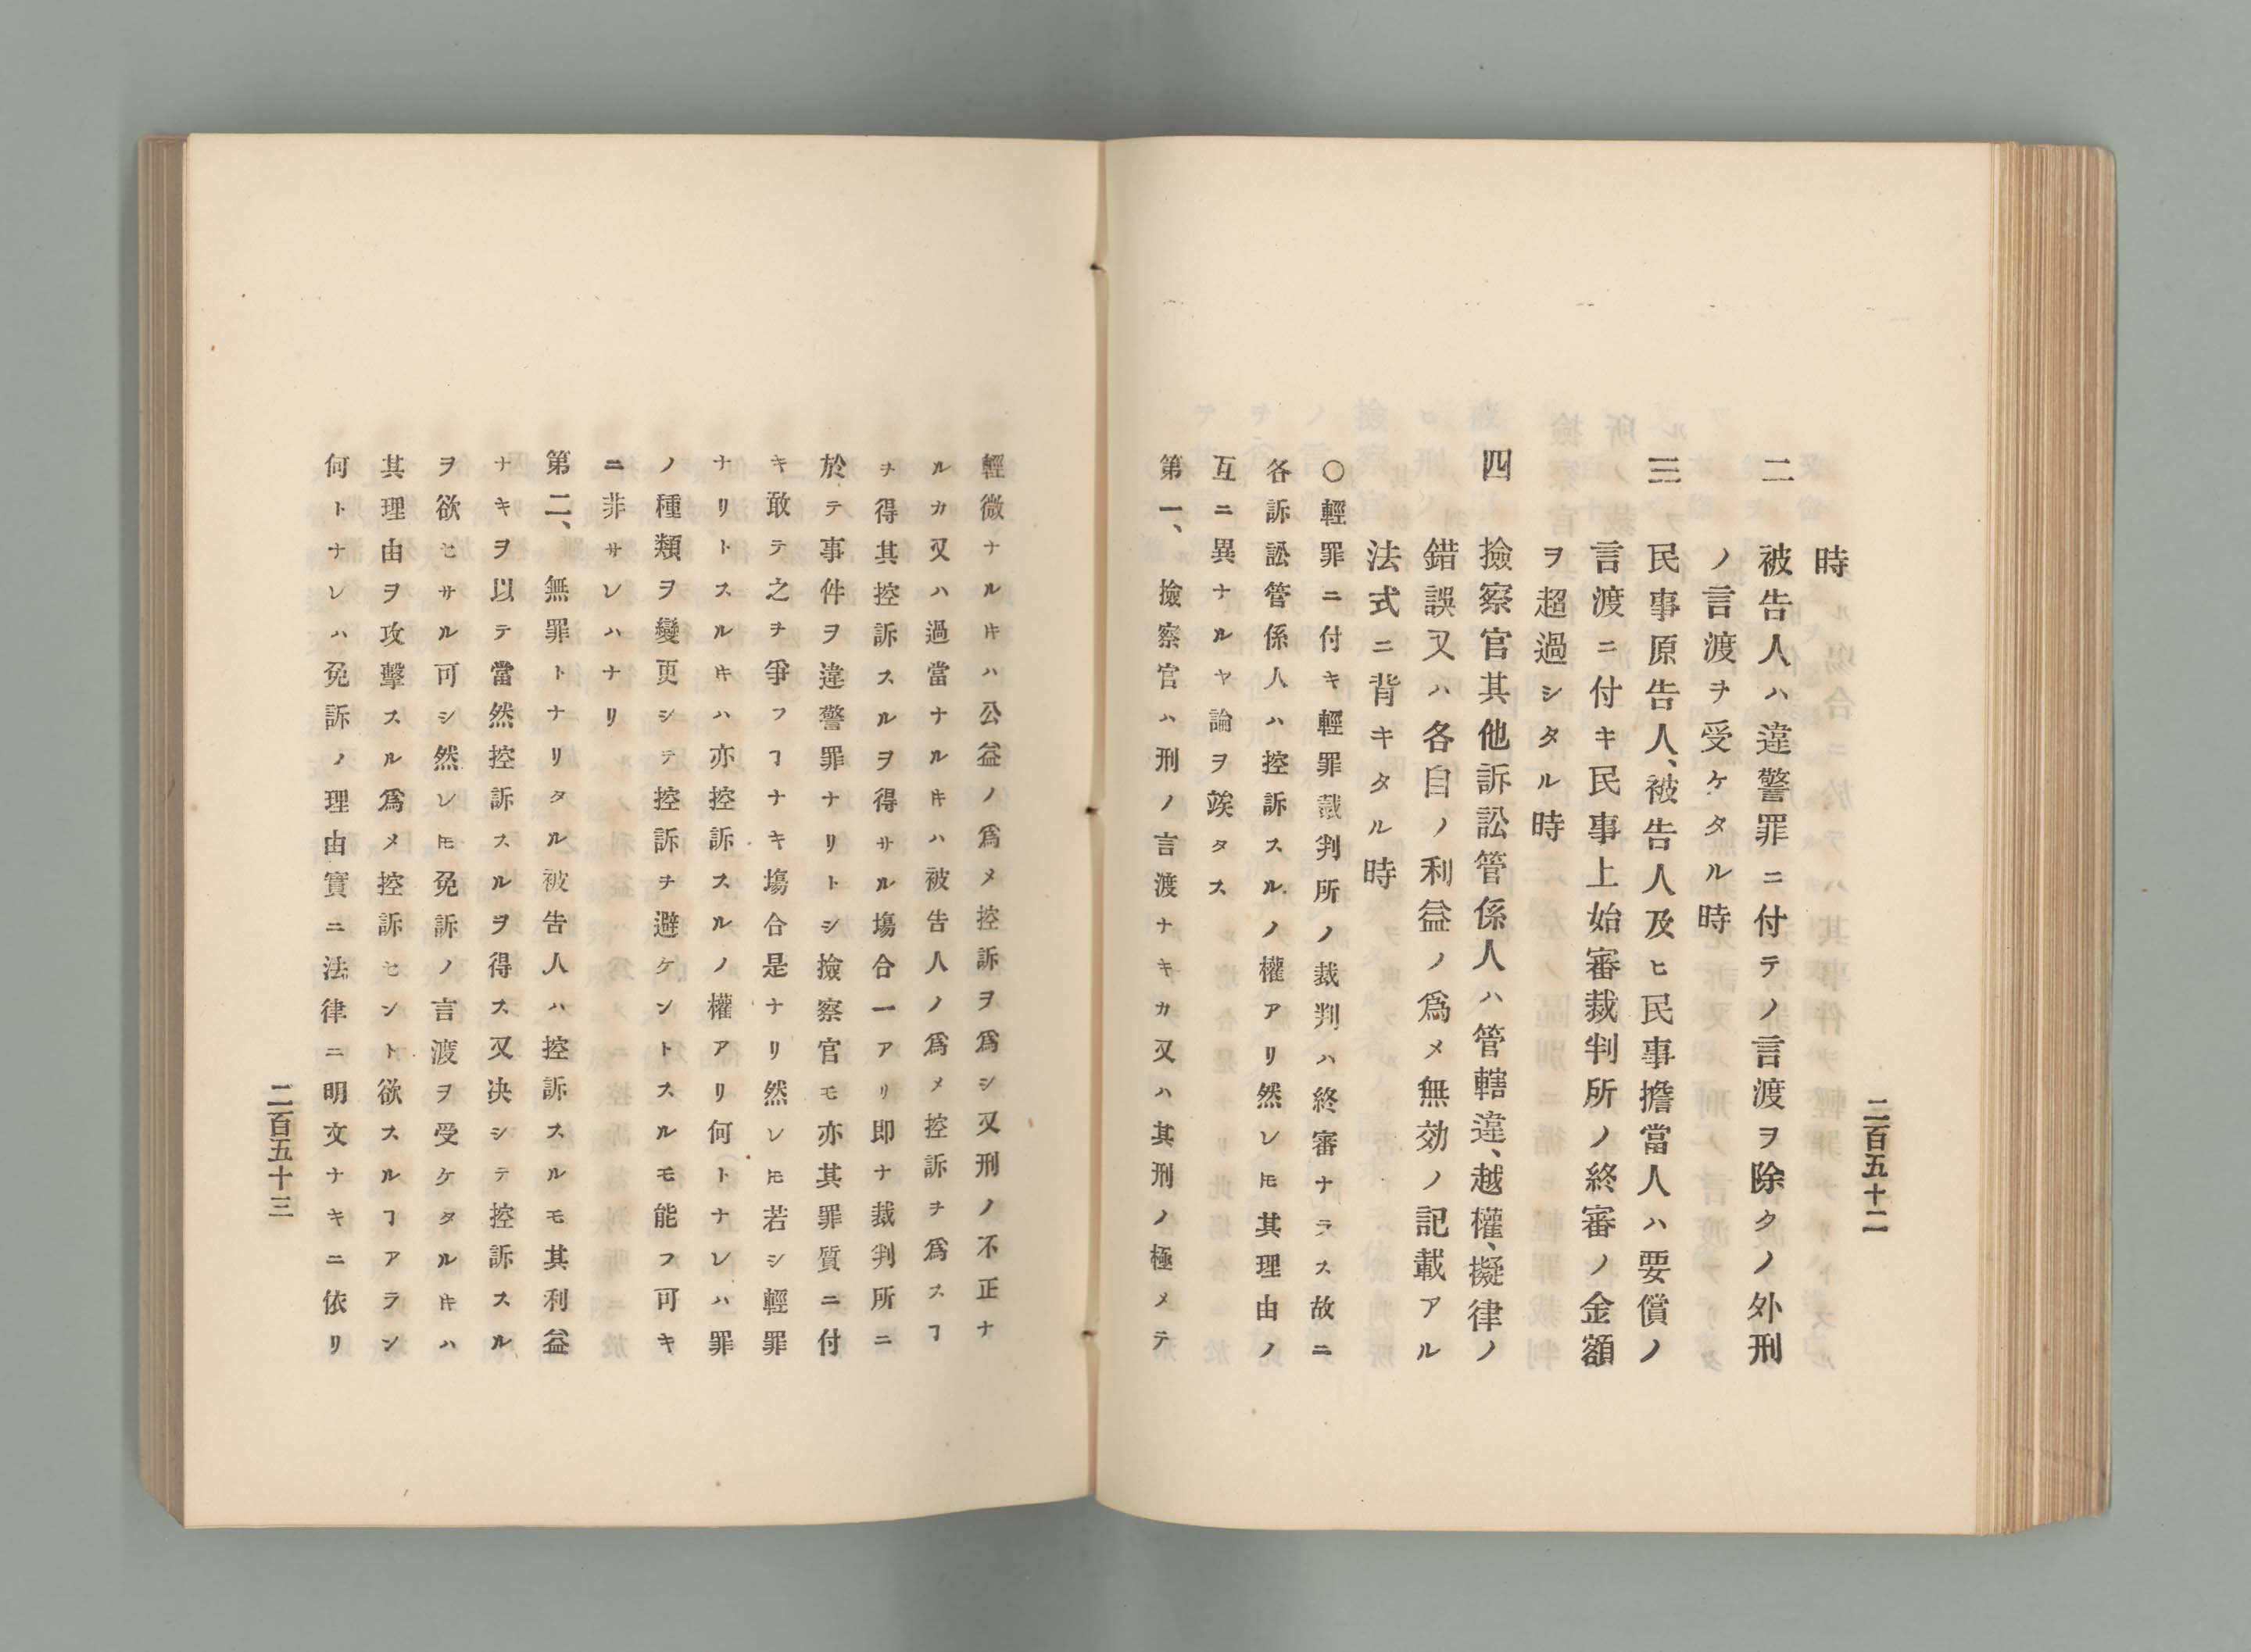 二百五十二
時
二 被告人ハ違警罪ニ付テノ言渡ヲ除クノ外刑
ノ言渡ヲ受ケタル時
三 民事原告人、被告人及ヒ民事擔當人ハ要償ノ
言渡ニ付キ民事上始審裁判所ノ終審ノ金額
ヲ超過シタル時
四 撿察官其他訴訟管係人ハ管轄違、越權、擬律ノ
錯誤又ハ各自ノ利益ノ爲メ無効ノ記載アル
法式ニ背キタル時
〇輕罪ニ付キ輕罪裁判所ノ裁判ハ終審ナラス故ニ
各訴訟管係人ハ控訴スルノ權アリ然レ𪜈其理由ノ
互ニ異ナルヤ論ヲ竢タス
第一、撿察官ハ刑ノ言渡ナキカ又ハ其刑ノ極メテ
輕微ナルキハ公益ノ爲メ控訴ヲ爲シ又刑ノ不正ナ
ルカ又ハ過當ナルキハ被告人ノ爲メ控訴ヲ爲スヿ
ヲ得其控訴スルヲ得サル塲合一アリ即ナ裁判所ニ
於テ事件ヲ違警罪ナリトシ撿察官モ亦其罪質ニ付
キ敢テ之ヲ爭フヿナキ塲合是ナリ然レ𪜈若シ輕罪
ナリトスルキハ亦控訴スルノ權アリ何トナレハ罪
ノ種類ヲ變更シテ控訴ヲ避ケントスルモ能フ可キ
ニ非サレハナリ
第二、無罪トナリタル被告人ハ控訴スルモ其利益
ナキヲ以テ當然控訴スルヲ得ス又决シテ控訴スル
ヲ欲セサル可シ然レ𪜈免訴ノ言渡ヲ受ケタルキハ
其理由ヲ攻擊スル爲メ控訴セント欲スルヿアラン
何トナレハ免訴ノ理由實ニ法律ニ明文ナキニ依リ
二百五十三